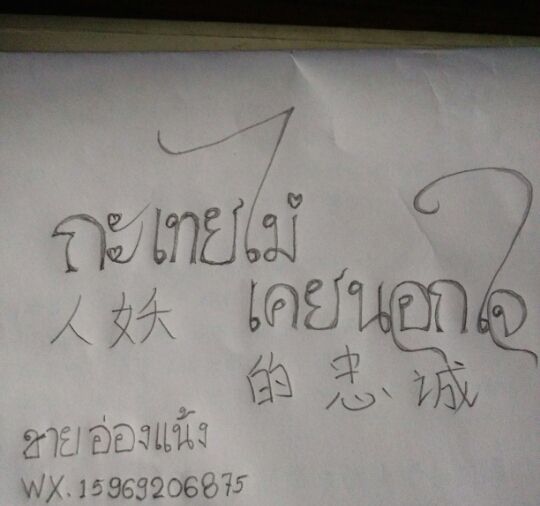 กะเทยไม่
人妖
เคยนอกใจ
的忠诚
ชายอ่องแน้ง
WX.15969206875